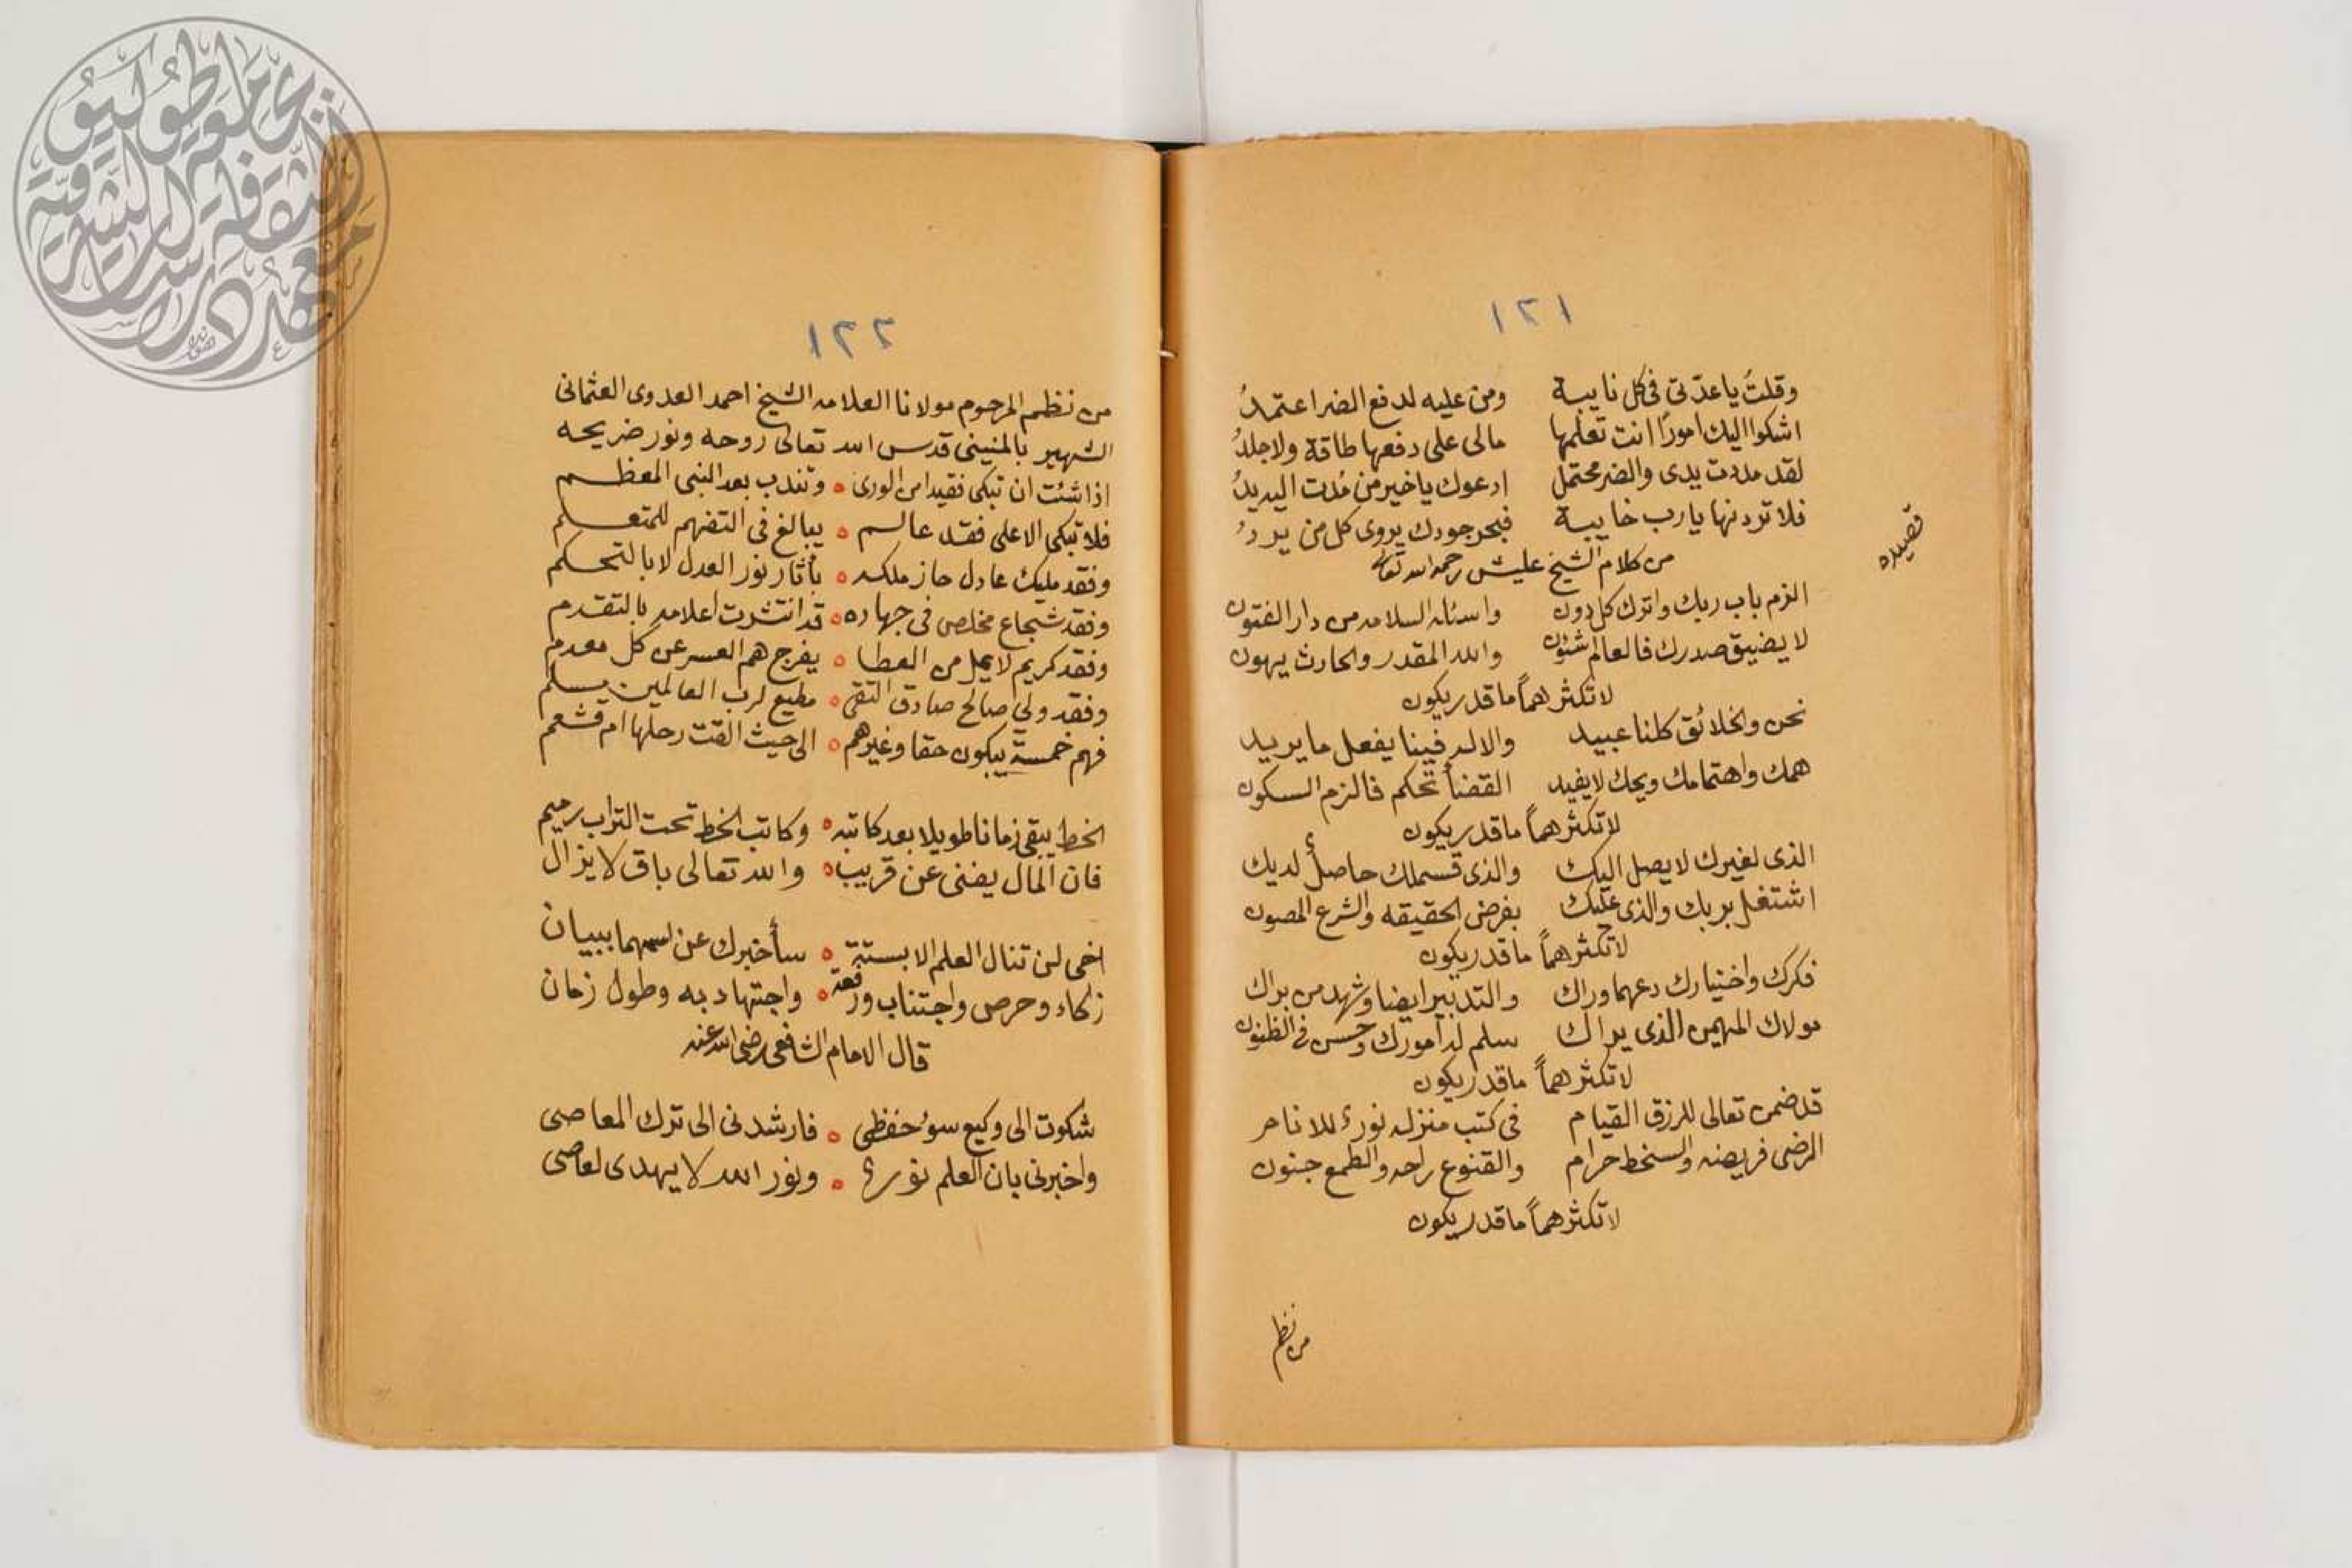 ١٢١
وقلتُ يا عدّتى فى كل نايبة ومن عليه لدفع الضر اعتمدُ
اشكوا اليك امورًا انت تعلمها مالى على دفعها طاقة ولا جلدُ
لقد مددت يدى والضر محتمل ادعوك يا خير من مُدت اليه يدُ
فلا تردنها يا رب خايبة فبحر جودك يروى كل من يردُ
قصيده
من كلام الشيخ عليش رحمه الله تعالى
الزم باب ربك واترك كل دون واسئله السلامه من دار الفتون
لا يضيق صدرك فالعالم شئون والله المقدر والحادث يهون
لا تكثر هماً ما قدر يكون
نحن والخلائق كلنا عبيد والاله فينا يفعل ما يريد
همك واهتمامك ويحك لا يفيد القضأ تحكم فالزم السكون
لا تكثر هماً ما قدر يكون
الذى لغيرك لا يصل اليك والذى قسم لك حاصل لديك
اشتغل بربك والذى عليك بفرض الحقيقه والشرع المصون
لا تكثر هماً ما قدر يكون
فكرك واختيارك دعهما وراك والتدبير ايضا وشهد من براك
مولاك المهيمن الذى يراك سلم له امورك وحسن فى الظنون
لا تكثر هماً ما قدر يكون
قد ضمن تعالى للرزق القيام فى كتب منزله نورۀ للانام
الرضى فريضه والسخط حرام والقنوع راحه والطمع جنون
لا تكثر هماً ما قدر يكون
من نظم
١٢٢
من نظم المرحوم مولانا العلامه الشيخ احمد العدوى العثمانى
الشهير بالمنينى قدس الله تعالى روحه ونور ضريحه
اذا شئت ان تبكى فقيدا من الورى ه وتندب بعد النبى المعظم
فلا تبكى الا على فقد عالم ه يبالغ فى التفهم للمتعلم
وفقد مليك عادل حاز ملكه ه بأثار نور العدل لا بالتحكم
وفقد شجاع مخلص فى جهاده ه قد انتثرت اعلامه بالتقدم
وفقد كريم لا يمل من العطا ه يفرج هم العسر عن كل معدم
وفقد ولي صالح صادق التقى ه مطيع لرب العالمين يسلم
فهم خمسة يبكون حقا وغيرهم ه الى حيث القت رحلها ام قشعم
الخط يبقى زمانا طويلا بعد كاتبه ه وكاتب الخط تحت التراب رميم
فان المال يفنى عن قريب ه والله تعالى باق لا يزال
اخى لن تنال العلم الا بستة ه سأخبرك عن اسمهما ببيان
زكاء وحرص واجتناب ورفعة ه واجتهاد به وطول زمان
قال الامام الشافعى رضى الله عنه
شكوت الى وكيع سوُ حفظى ه فارشدنى الى ترك المعاصى
واخبرنى بان العلم نورۀ ه ونور الله لا يهدى لعاصى